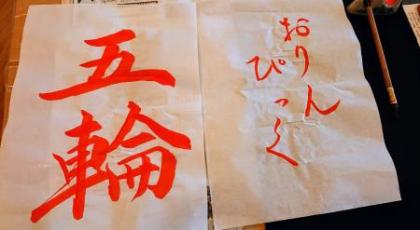 五輪
おりん
ぴっく